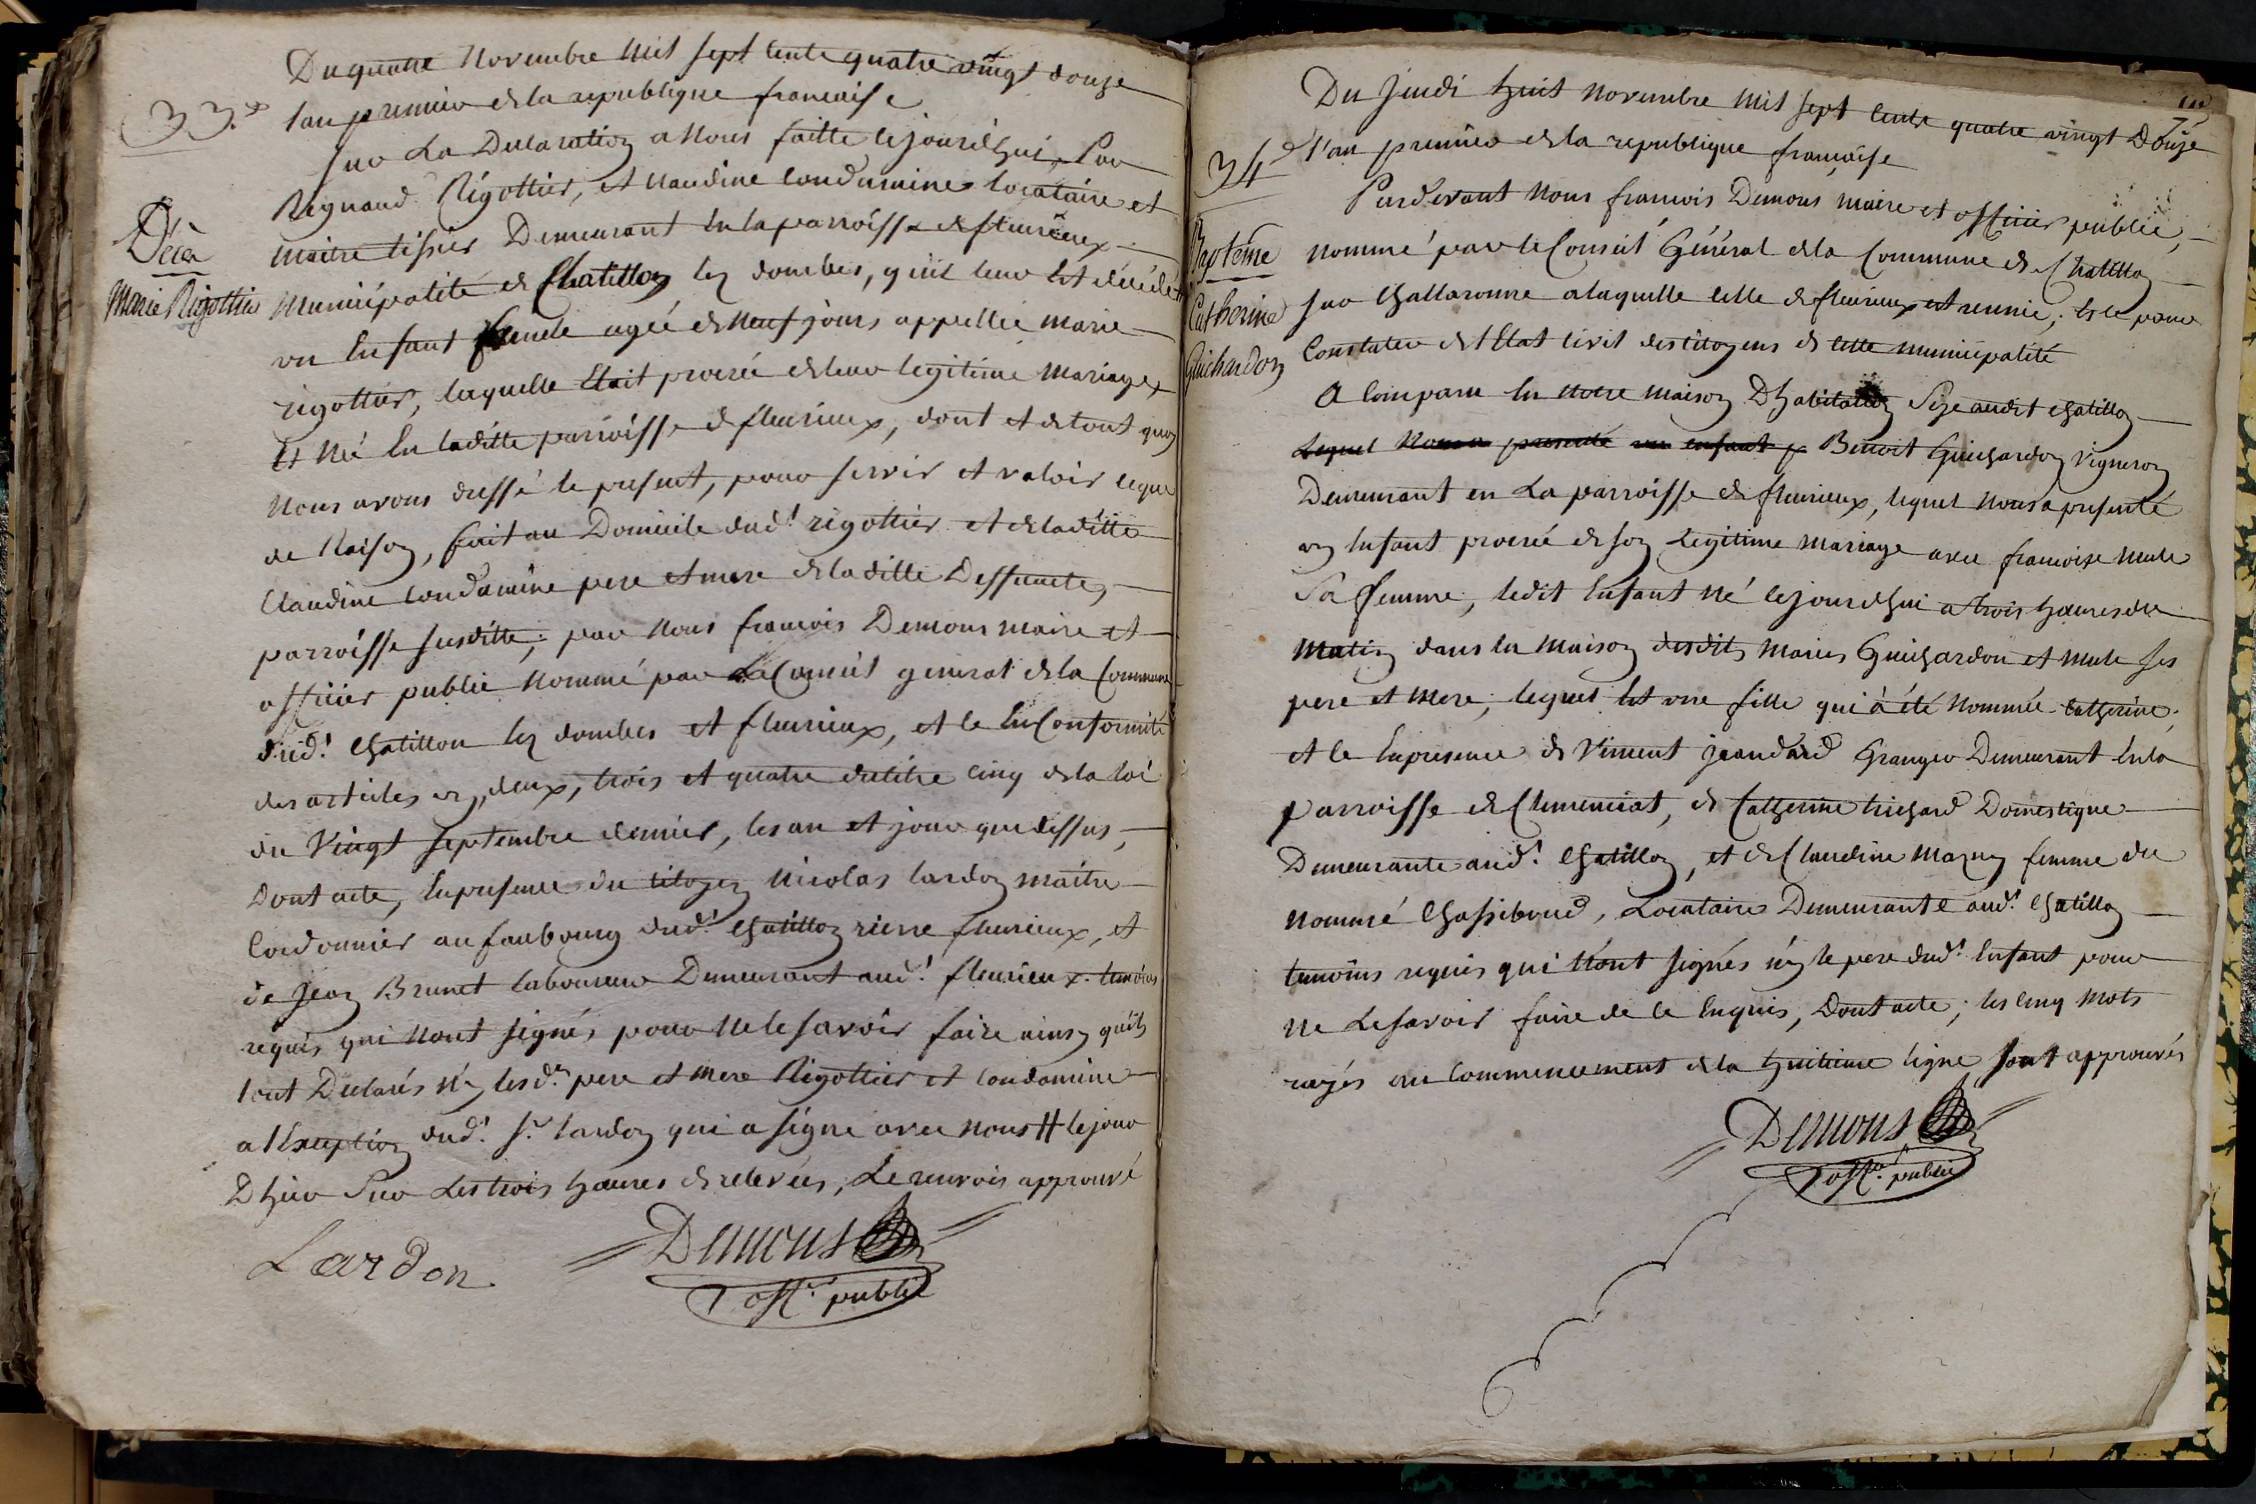 33.e
Du quatre Novembre mil sept cents quatre vingt douze
l'an premier de la republique francaise
Décés
Marie Rigottier
sur La Declaration a Nous faitte cejourd'hui, Par
Regnaud Rigottier, et Claudine Condamine locataire et
maitre tissier Demeurant en la parroisse de fleurieux
Municipalité de Chatillon les dombes, qu'il leur est décédé
un Enfant femele agée de Neuf jours appellée marie
rigottier, laquelle Etait procréé de leur legitime Mariage,
et Né En laditte parroisse de fleurieux, dont et de tout quoy
Nous avons dressé le present, pour servir et valoir ce que
de Raison, fait au Domicile dud.t rigottier et de laditte
Claudine Condamine pere et mere de laditte Deffuncte,
parroisse susditte; par Nous francois Demons maire et
officier public Nommé par Le Conseil general de la Commune
dud.t Chatillon les dombes et fleurieux, et ce En Conformité
des articles un, deux, trois et quatre du titre cinq de la loi
du Vingt septembre dernier, les an et jour que dessus,
Dont acte, En presence du citoyen Nicolas Lardon maitre
Cordonnier au faubourg dud.t Chatillon riere fleurieux, et
de Jean Brunet laboureur Demeurant aud.t fleurieux temoins
requis qui Nont signés pour Ne le savoir faire ainsy qu'ils
lont Declarés N'y lesd.ts pere et mere Rigottier et Condamine
a lExeption dud.t S.r Lardon qui a signé avec nous # le jour
D'hier Sur Les trois heures de relevées, Le renvois approuvé
Lardon
Demons
off.er public
Du Jeudi huit Novembre mil sept cents quatre vingt Douze
34.e
l'an premier de la republique française
Baptême
Catherine
Guichardon
Pardevant Nous francois Demons maire et officier public,
nommé par le Conseil Général de la Commune de Chatillon
sur Challaronne a laquelle celle de fleurieux est reunie; et ce pour
Constater de l'Etat Civil des citoyens de cette municipalité
A Comparu En notre maison D'habitation Size audit Chatillon
Lequel Nous a presenté un enfant Benoit Guichardon Vigneron
Demeurant en La parroisse de fleurieux, lequel Nous a presenté
un Enfant procréé de son Legitime Mariage avec francoise Mule
Sa femme, ledit Enfant Né cejourdhui a trois heures du
Matin dans la maison desdits Mariés Guichardon et Mule ses
pere et Mere, lequel Est une fille qui à été Nommée Catherine,
et ce En presence de Vincent Jeandard Granger Demeurant En la
parroisse de Clemenciat, de Catherine trichard Domestique
Demeurante aud.t Chatillon, et de Claudine Mazuy femme du
Nommé Chassiboud, Locataire Demeurante aud.t Chatillon
temoins requis qui N'ont signés n'y le pere dud.t Enfant pour
Ne Le savoir faire de ce Enquis, Dont acte; les cinq Mots
rayés au Commencement de la huitieme ligne sont approuvés
Demons
off.er public